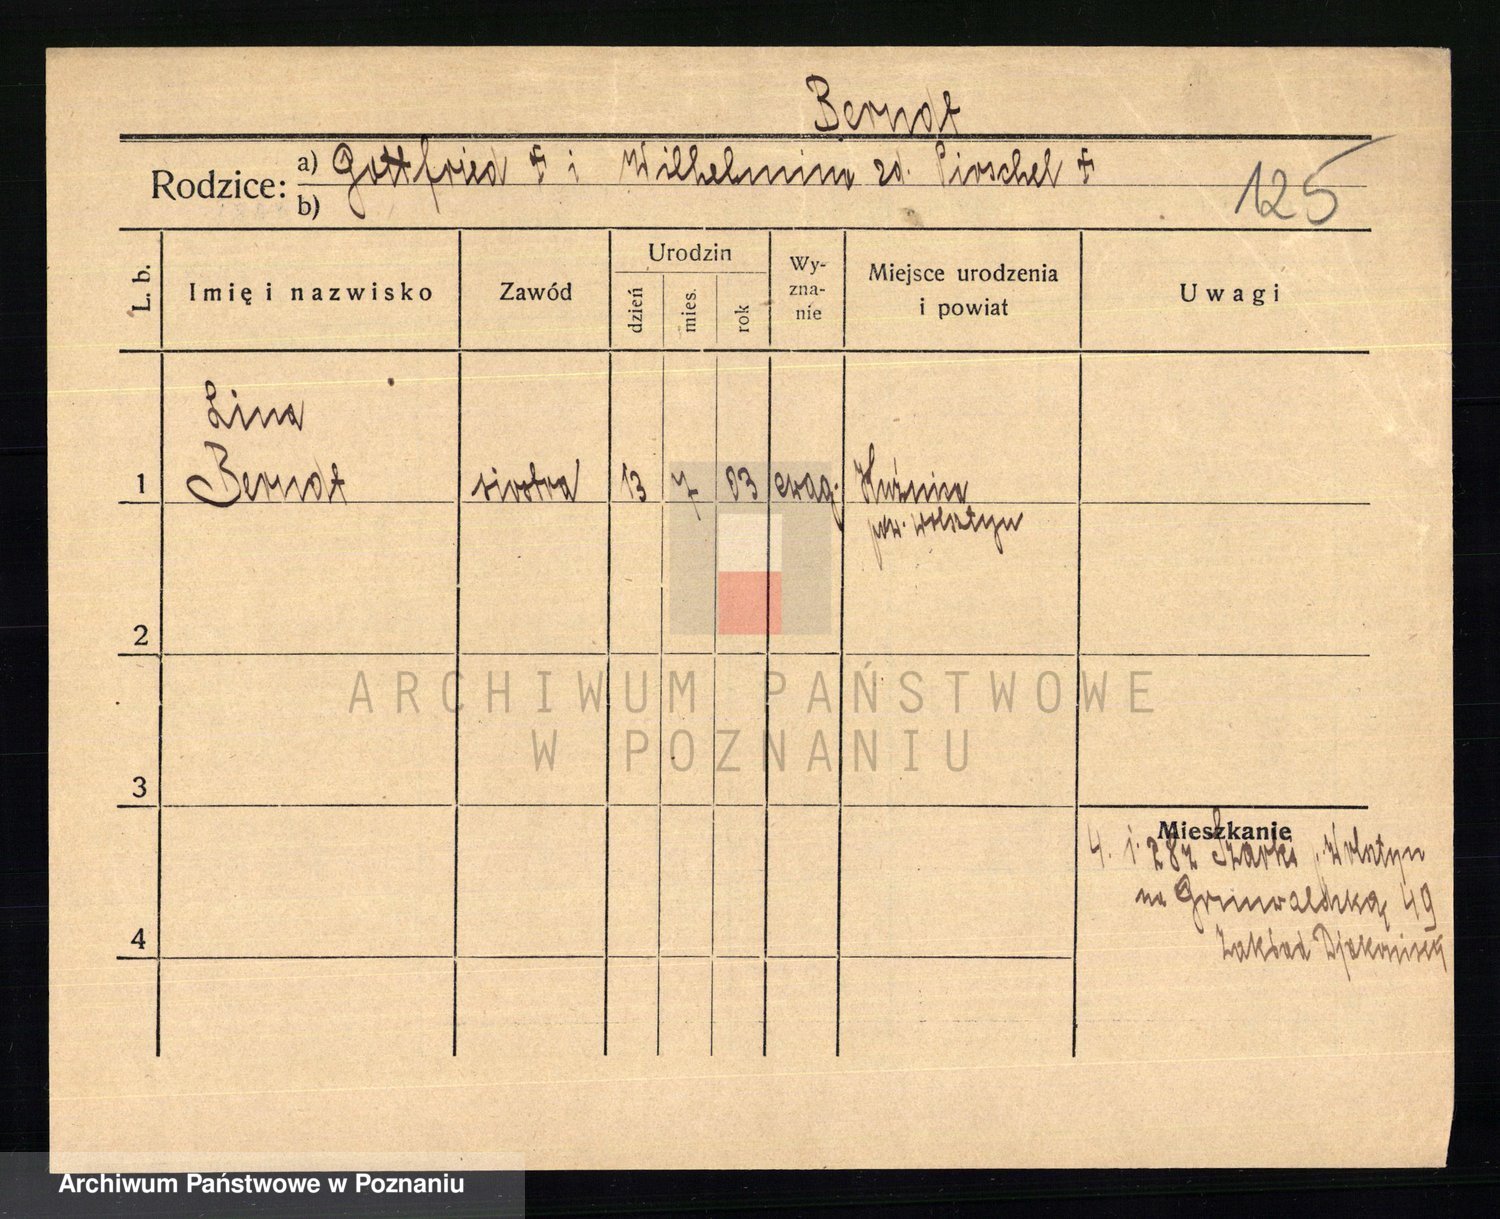 Berndt
Rodzice: a) Gottfried i Wilhelmina zd. Pioschel
b)
125
L. b.
Imię i nazwisko
Zawód
Urodzin
dzień
mies.
rok
Wy-
zna-
nie
Miejsce urodzenia
i powiat
Uwagi
Lina
1 Berndt siostra 13 7 03 ewag. Kuźnica
pow. Wolsztyn
2
3
4
ARCHIWUM PAŃSTWOWE
W POZNANIU
Mieszkanie
4. i. 287 Szarki, Wolsztyn
na Grunwaldzką 49
Zakład Djakonisek
Archiwum Państwowe w Poznaniu